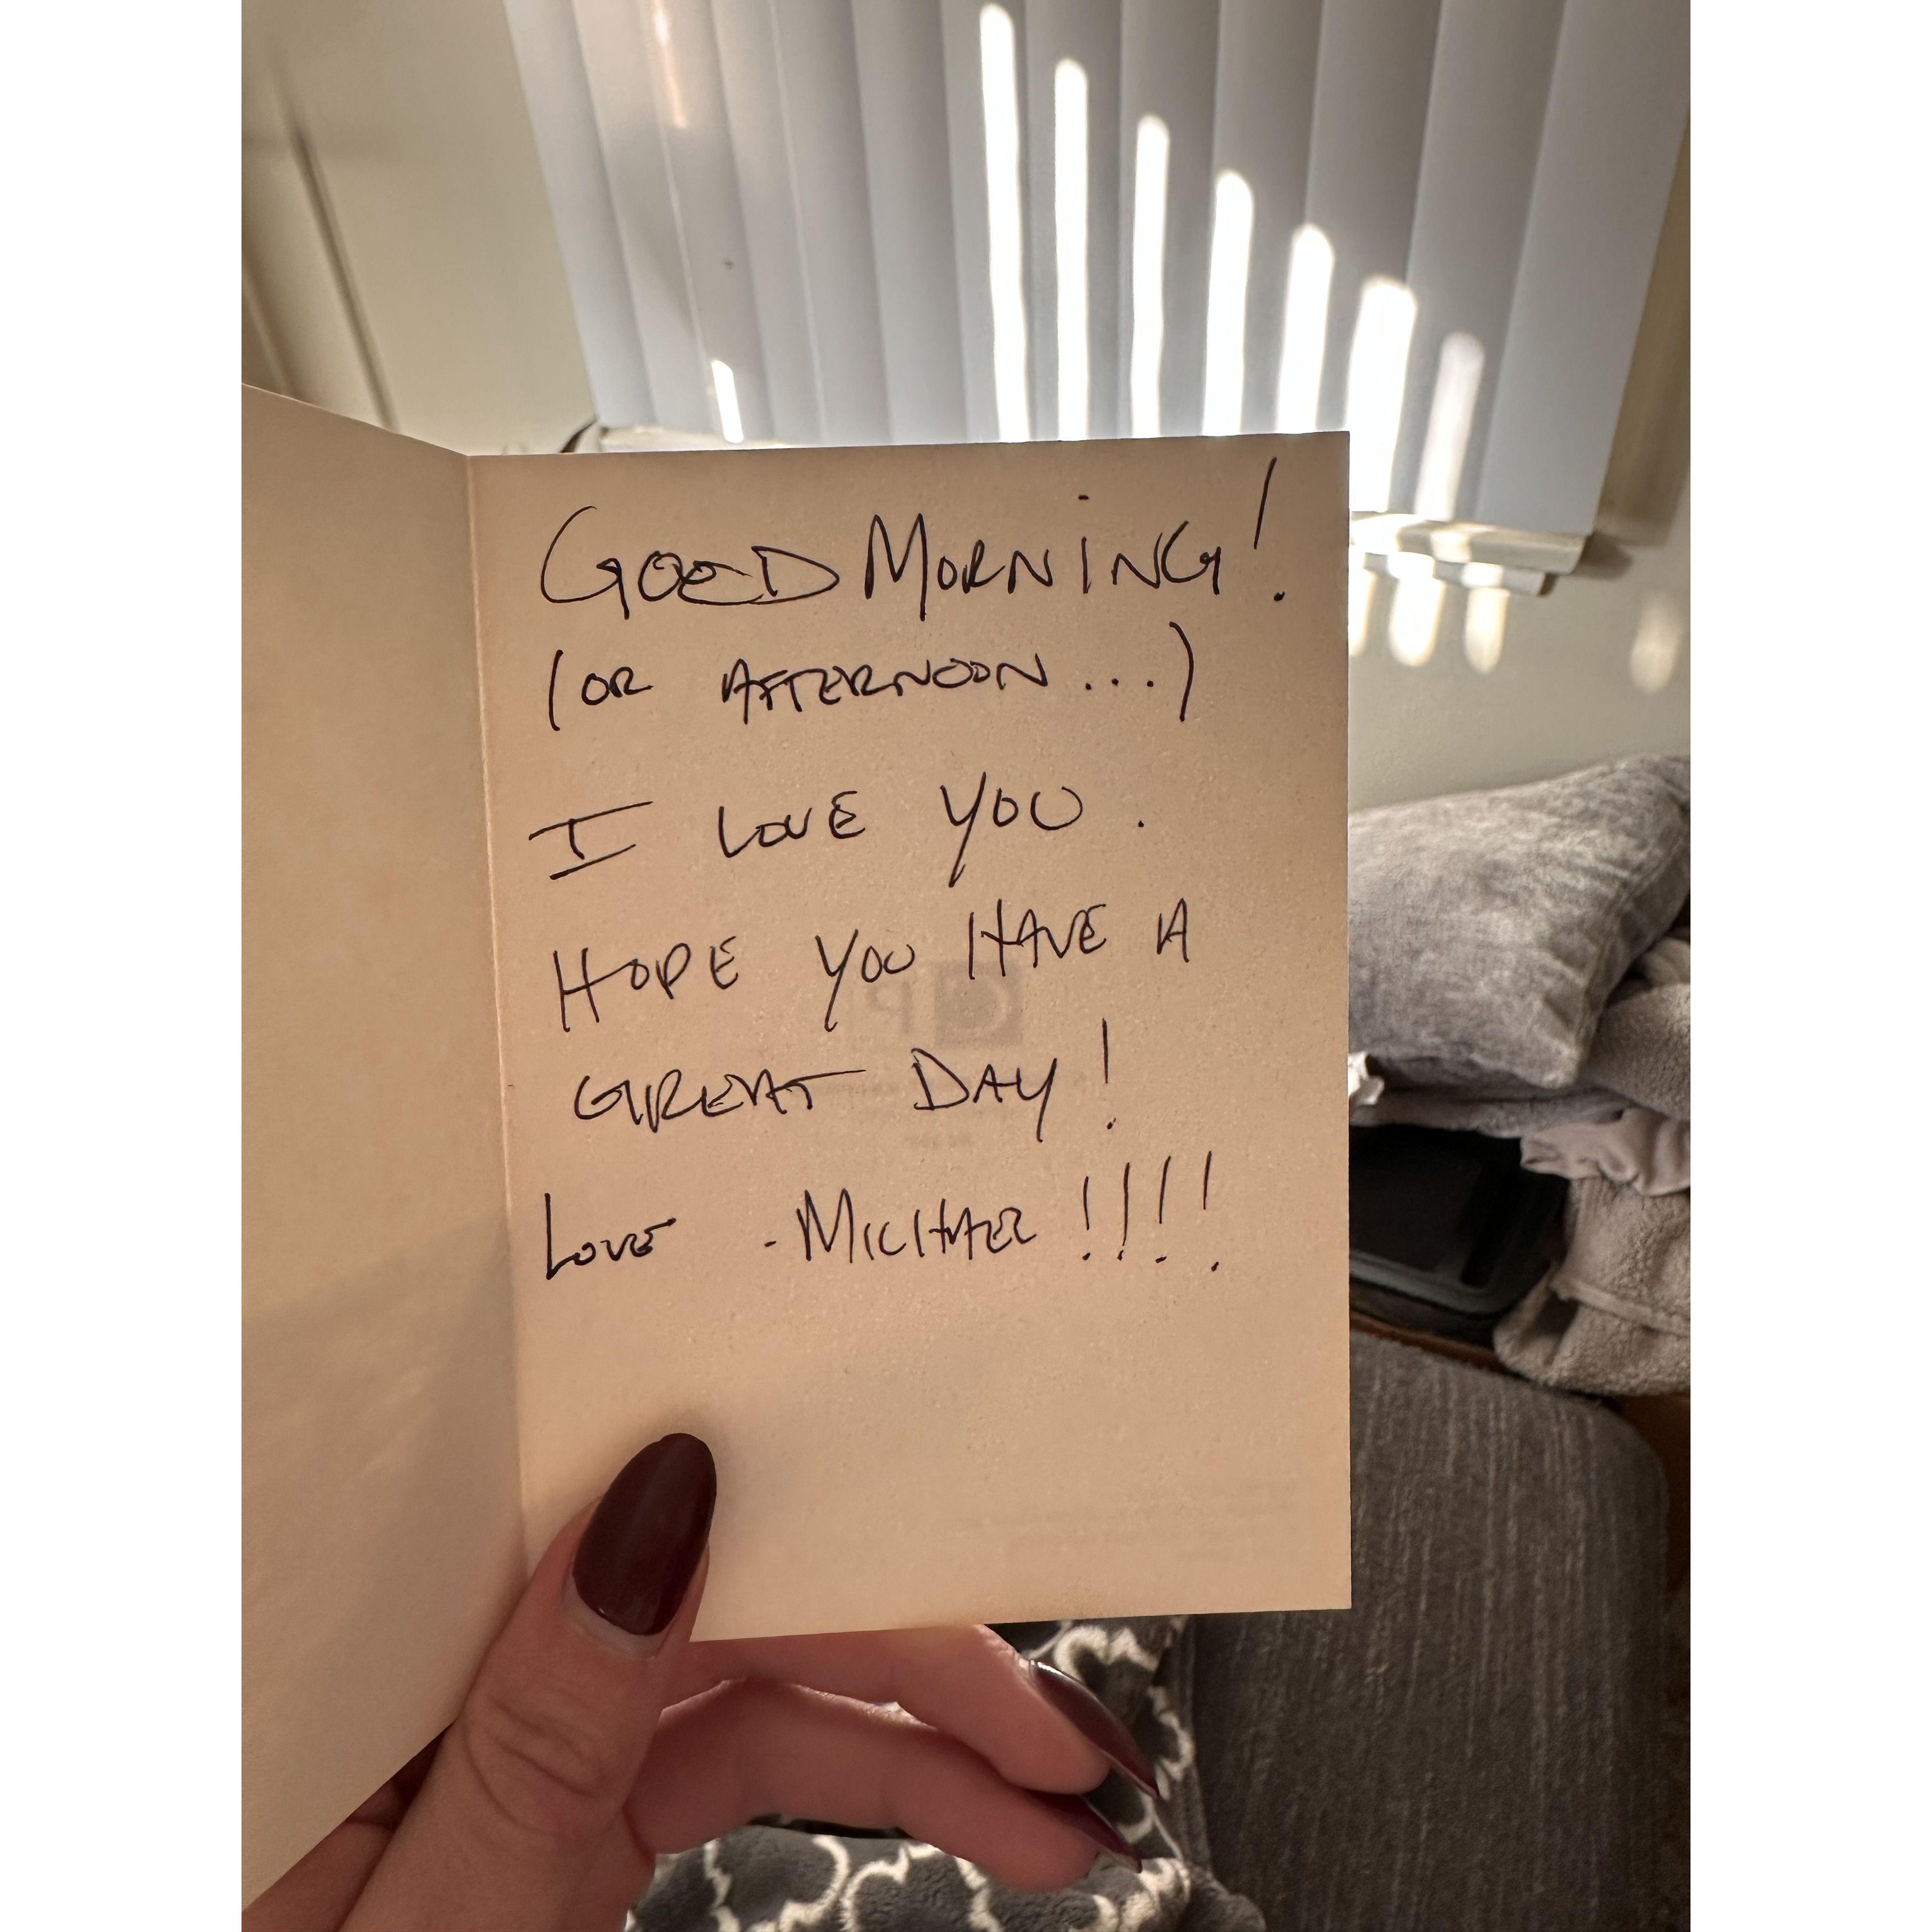 GOOD MORNING!
(OR AFTERNOON...)
I LOVE YOU.
HOPE YOU HAVE A
GREAT DAY!
LOVE -MICHAEL!!!!